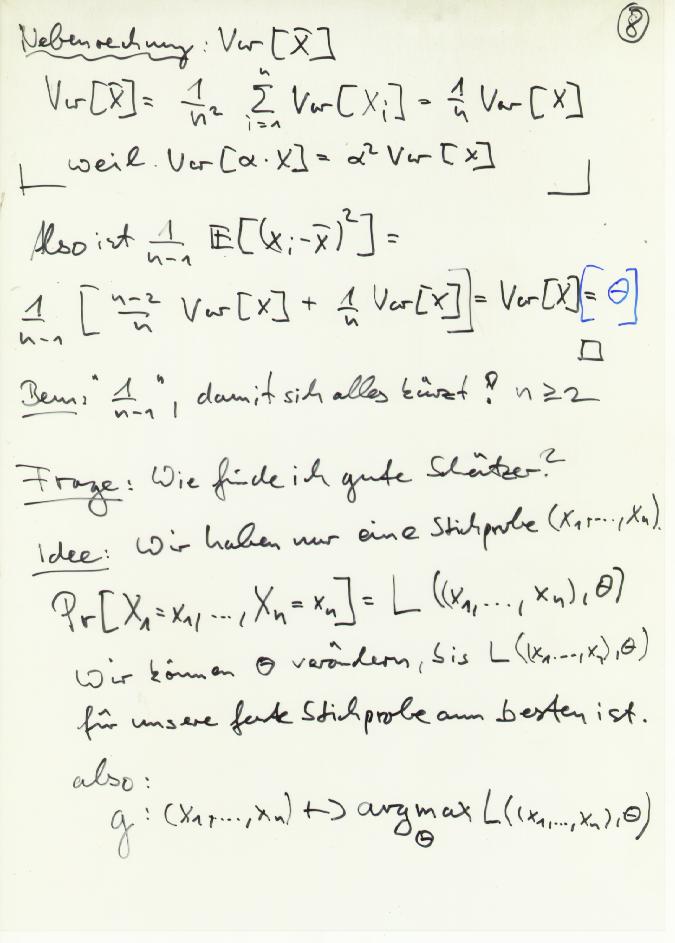 8
Nebenrechnung: Var[X̄]
Var[X̄] = 1/n² ∑_{i=1}^{n} Var[X_i] = 1/n Var[X]
weil. Var[α·X] = α² Var[X]
Also ist 1/(n-1) 𝔼[(X_i - X̄)²] =
1/(n-1) [ (n-2)/n Var[X] + 1/n Var[X] ] = Var[X] [= Θ]
□
Bem: "1/(n-1)", damit sich alles kürzt! n ≥ 2
Frage: Wie finde ich gute Schätzer?
Idee: Wir haben nur eine Stichprobe (x_1, ..., x_n).
Pr[X_1 = x_1, ..., X_n = x_n] = L((x_1, ..., x_n), Θ)
Wir können Θ verändern, bis L((x_1, ..., x_n), Θ)
für unsere feste Stichprobe am besten ist.
also:
g: (x_1, ..., x_n) ↦ argmax_Θ L((x_1, ..., x_n), Θ)